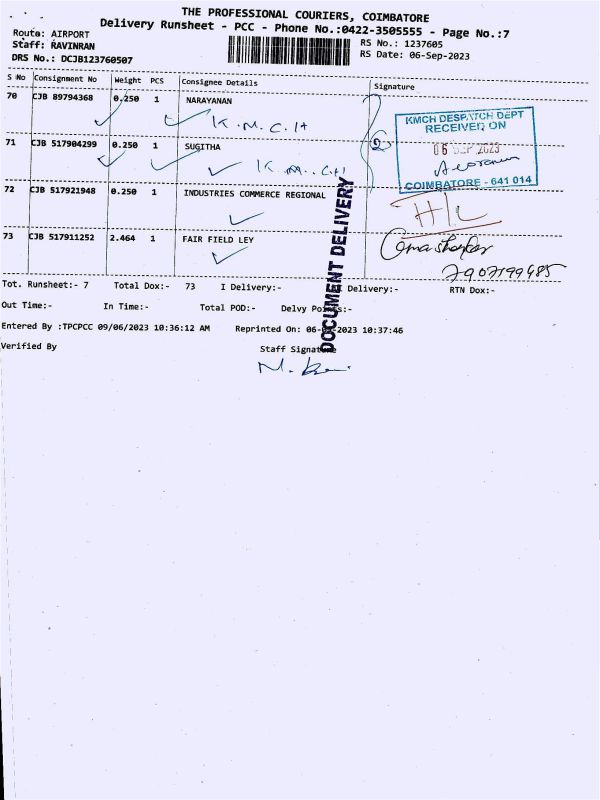 THE PROFESSIONAL COURIERS, COIMBATORE
Delivery Runsheet - PCC - Phone No.:0422-3505555 - Page No.:7
Route: AIRPORT
Staff: RAVINRAN
DRS No.: DCJB123760507
RS No.: 1237605
RS Date: 06-Sep-2023
S No Consignment No Weight PCS Consignee Details Signature
70 CJB 89794368 0.250 1 NARAYANAN
K.M.C.H
71 CJB 517904299 0.250 1 SUGITHA
K.M.C.H
KMCH DESPATCH DEPT
RECEIVED ON
06 SEP 2023
COIMBATORE - 641 014
72 CJB 517921948 0.250 1 INDUSTRIES COMMERCE REGIONAL
73 CJB 517911252 2.464 1 FAIR FIELD LEY
DOCUMENT DELIVERY
Tot. Runsheet:- 7 Total Dox:- 73 I Delivery:- Delivery:- RTN Dox:-
Out Time:- In Time:- Total POD:- Delvy Points:-
Entered By :TPCPCC 09/06/2023 10:36:12 AM Reprinted On: 06-09-2023 10:37:46
Verified By Staff Signature